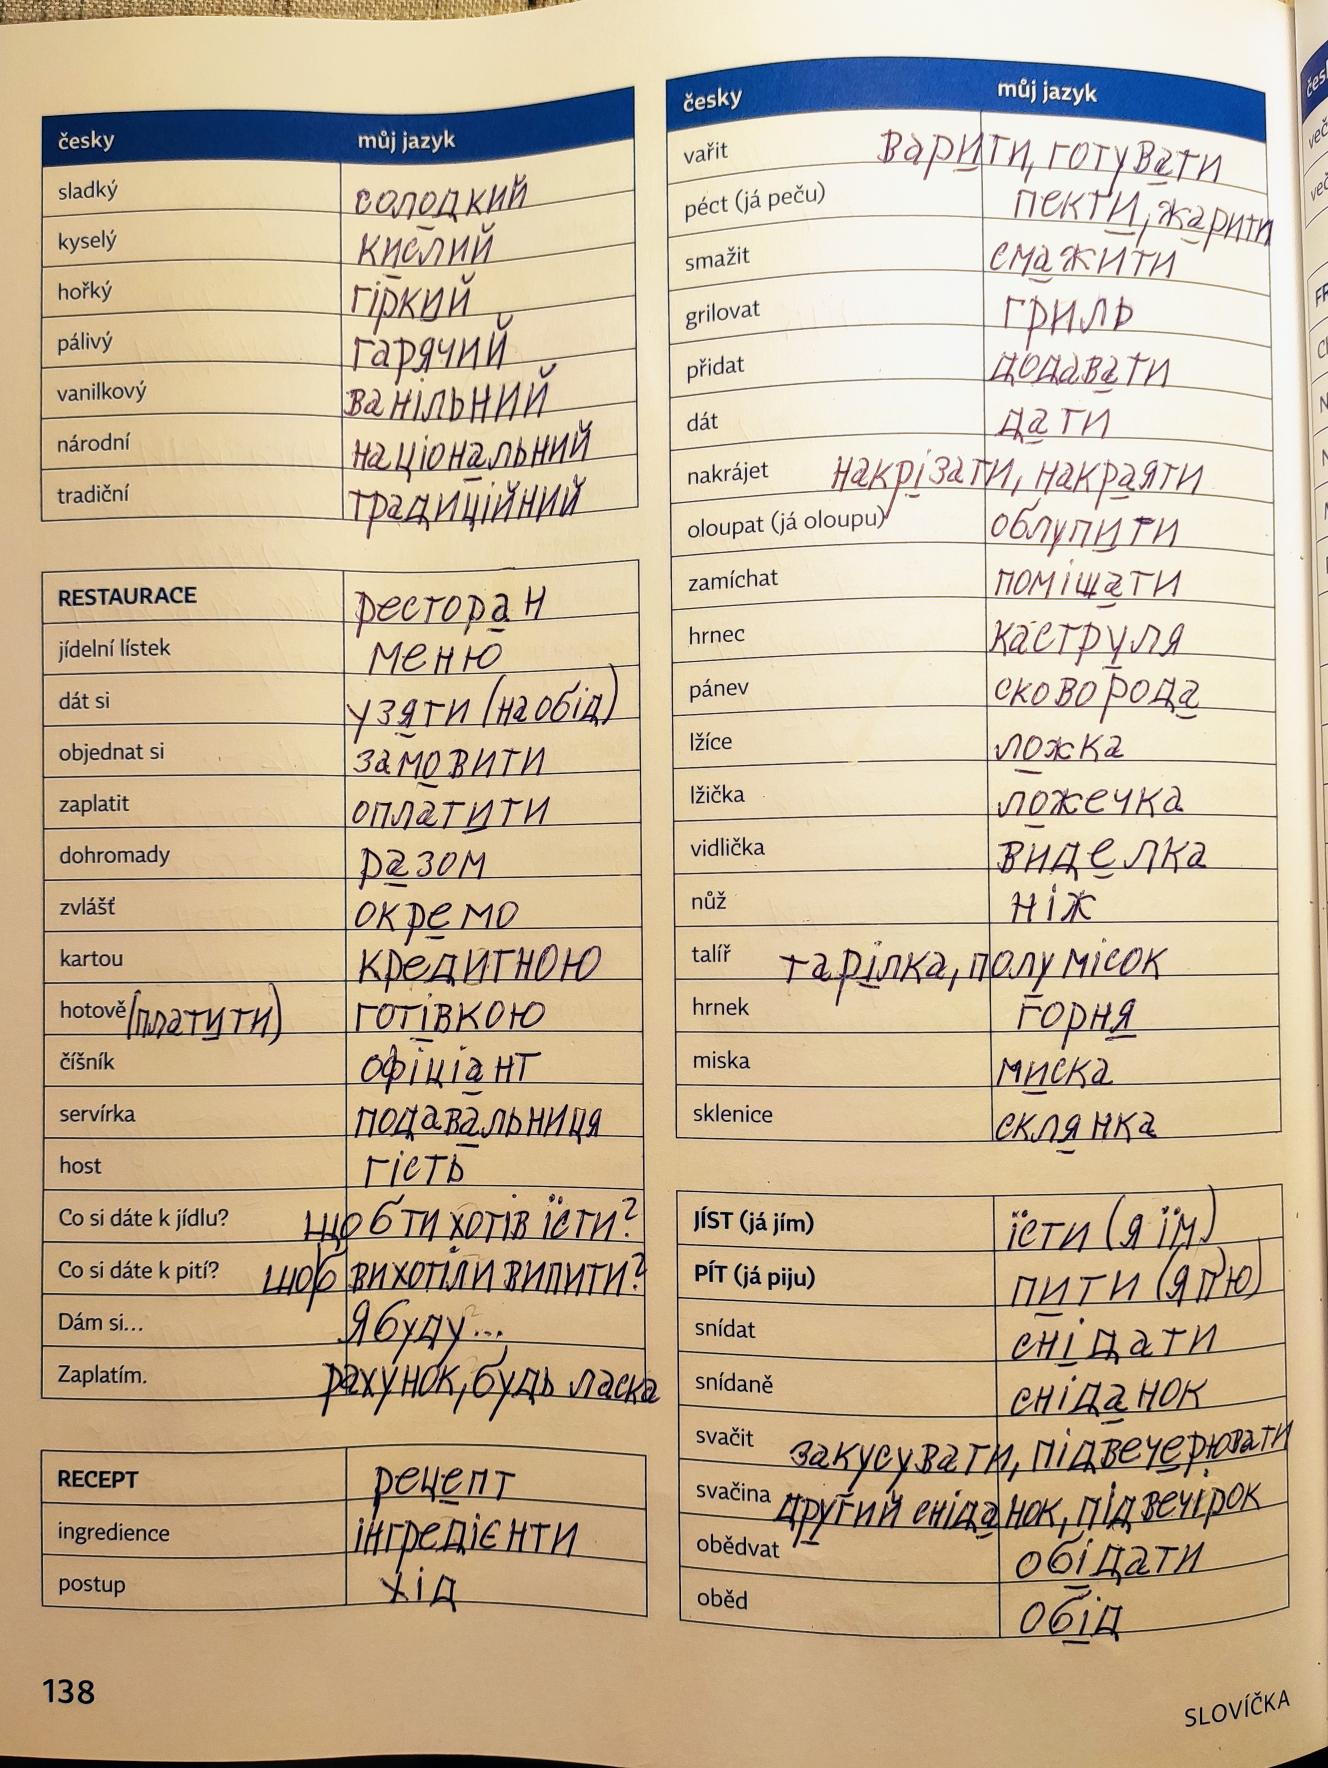 česky můj jazyk
sladký солодкий
kyselý кислий
hořký гіркий
pálivý гарячий
vanilkový ванільний
národní національний
tradiční традиційний
RESTAURACE ресторан
jídelní lístek меню
dát si узяти (на обід)
objednat si замовити
zaplatit оплатити
dohromady разом
zvlášť окремо
kartou кредитною
hotově (платити) готівкою
číšník офіціант
servírka подавальниця
host гість
Co si dáte k jídlu? що б ти хотів їсти?
Co si dáte k pití? щоб ви хотіли випити?
Dám si... Я буду...
Zaplatím. рахунок, будь ласка
RECEPT рецепт
ingredience інгредієнти
postup хід
138
česky můj jazyk
vařit варити, готувати
péct (já peču) пекти, жарити
smažit смажити
grilovat гриль
přidat додавати
dát дати
nakrájet накрізати, накраяти
oloupat (já oloupu) облупити
zamíchat поміщати
hrnec каструля
pánev сковорода
lžíce ложка
lžička ложечка
vidlička виделка
nůž ніж
talíř тарілка, полумісок
hrnek горня
miska миска
sklenice склянка
JÍST (já jím) їсти (я їм)
PÍT (já piju) пити (я п'ю)
snídat снідати
snídaně сніданок
svačit закусувати, підвечерювати
svačina другий сніданок, підвечірок
obědvat обідати
oběd обід
SLOVÍČKA